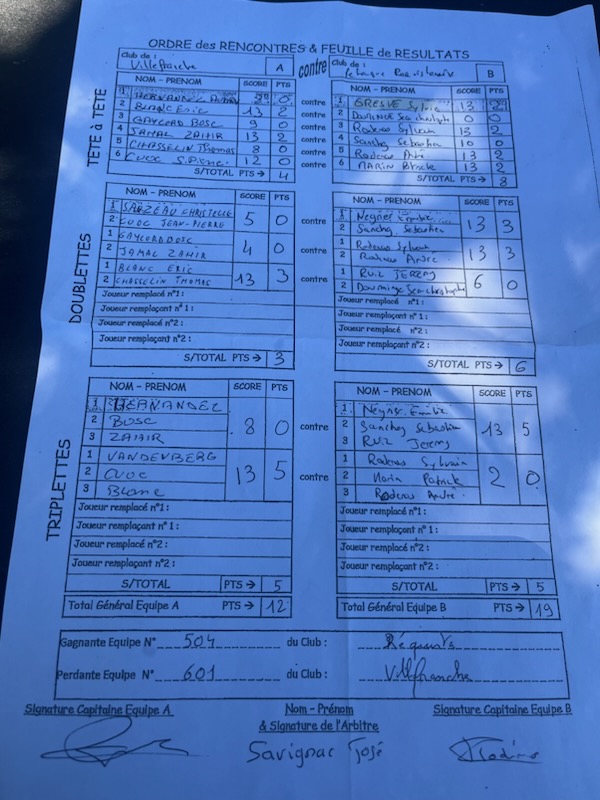 ORDRE des RENCONTRES & FEUILLE de RESULTATS
Club de : Villefranche A contre Club de : B
TÊTE à TÊTE
NOM - PRENOM SCORE PTS NOM - PRENOM SCORE PTS
1 HERNANDEL 0 contre 1 GRESVE Sylvie 13 2
2 BLANC ERIC 13 2 contre 2 0 0
3 GAYLORD BOSC 9 0 contre 3 Roderas Sylvain 13 2
4 JAMAL ZAHIR 13 2 contre 4 Sanchez Sebastien 10 0
5 CHASSELIN Thomas 8 0 contre 5 Roderas André 13 2
6 CUOC J.PIERRE 12 0 contre 6 MARIN Patrick 13 2
S/TOTAL PTS → 4 S/TOTAL PTS → 8
DOUBLETTES
NOM - PRENOM SCORE PTS NOM - PRENOM SCORE PTS
1 SARZEAU CHRISTELLE 5 0 contre 1 Negrier 13 3
2 CUOC JEAN-PIERRE 2 Sanchez Sebastien
1 GAYLORD BOSC 4 0 contre 1 Roderas Sylvain 13 3
2 JAMAL ZAHIR 2 Roderas André
1 BLANC ERIC 13 3 contre 1 RUIZ JEREMY 6 0
2 CHASSELIN THOMAS 2
Joueur remplacé n°1 : Joueur remplacé n°1 :
Joueur remplaçant n°1 : Joueur remplaçant n°1 :
Joueur remplacé n°2 : Joueur remplacé n°2 :
Joueur remplaçant n°2 : Joueur remplaçant n°2 :
S/TOTAL PTS → 3 S/TOTAL PTS → 6
TRIPLETTES
NOM - PRENOM SCORE PTS NOM - PRENOM SCORE PTS
1 HERNANDEL 8 0 contre 1 Negrier 13 5
2 BOSC 2 Sanchez Sebastien
3 ZAHIR 3 RUIZ Jeremy
1 VANDENBERG 13 5 contre 1 Roderas Sylvain 2 0
2 CUOC 2 Marin Patrick
3 Blanc 3 Roderas André
Joueur remplacé n°1 : Joueur remplacé n°1 :
Joueur remplaçant n°1 : Joueur remplaçant n°1 :
Joueur remplacé n°2 : Joueur remplacé n°2 :
Joueur remplaçant n°2 : Joueur remplaçant n°2 :
S/TOTAL PTS → 5 S/TOTAL PTS → 5
Total Général Equipe A PTS → 12 Total Général Equipe B PTS → 19
Gagnante Equipe N° 504 du Club :
Perdante Equipe N° 601 du Club : Villefranche
Signature Capitaine Equipe A Nom - Prénom Signature Capitaine Equipe B
& Signature de l'Arbitre
Savignac José